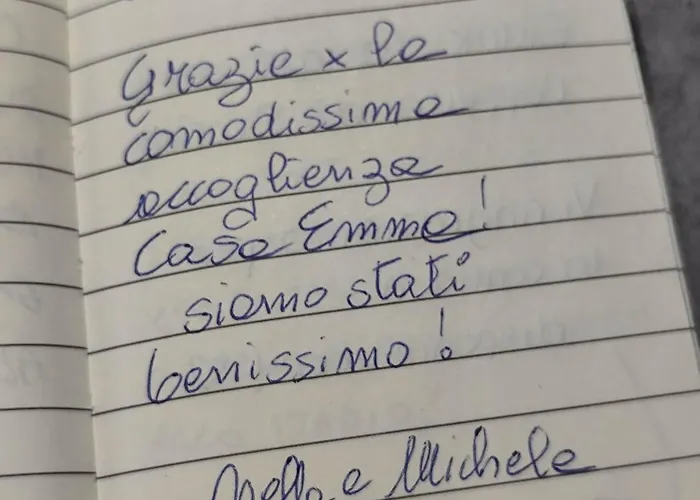 Grazie x la
comodissima
accoglienza
Casa Emme!
siamo stati
benissimo!
e Michele